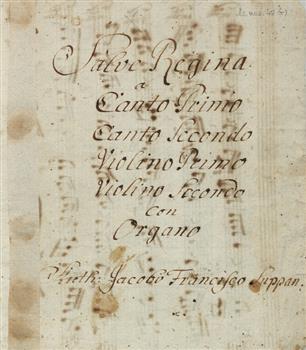 Salve Regina
a
Canto Primo
Canto Secondo
Violino Primo
Violino Secondo
con
Organo
Auth: Jacobo Francisco Suppan.